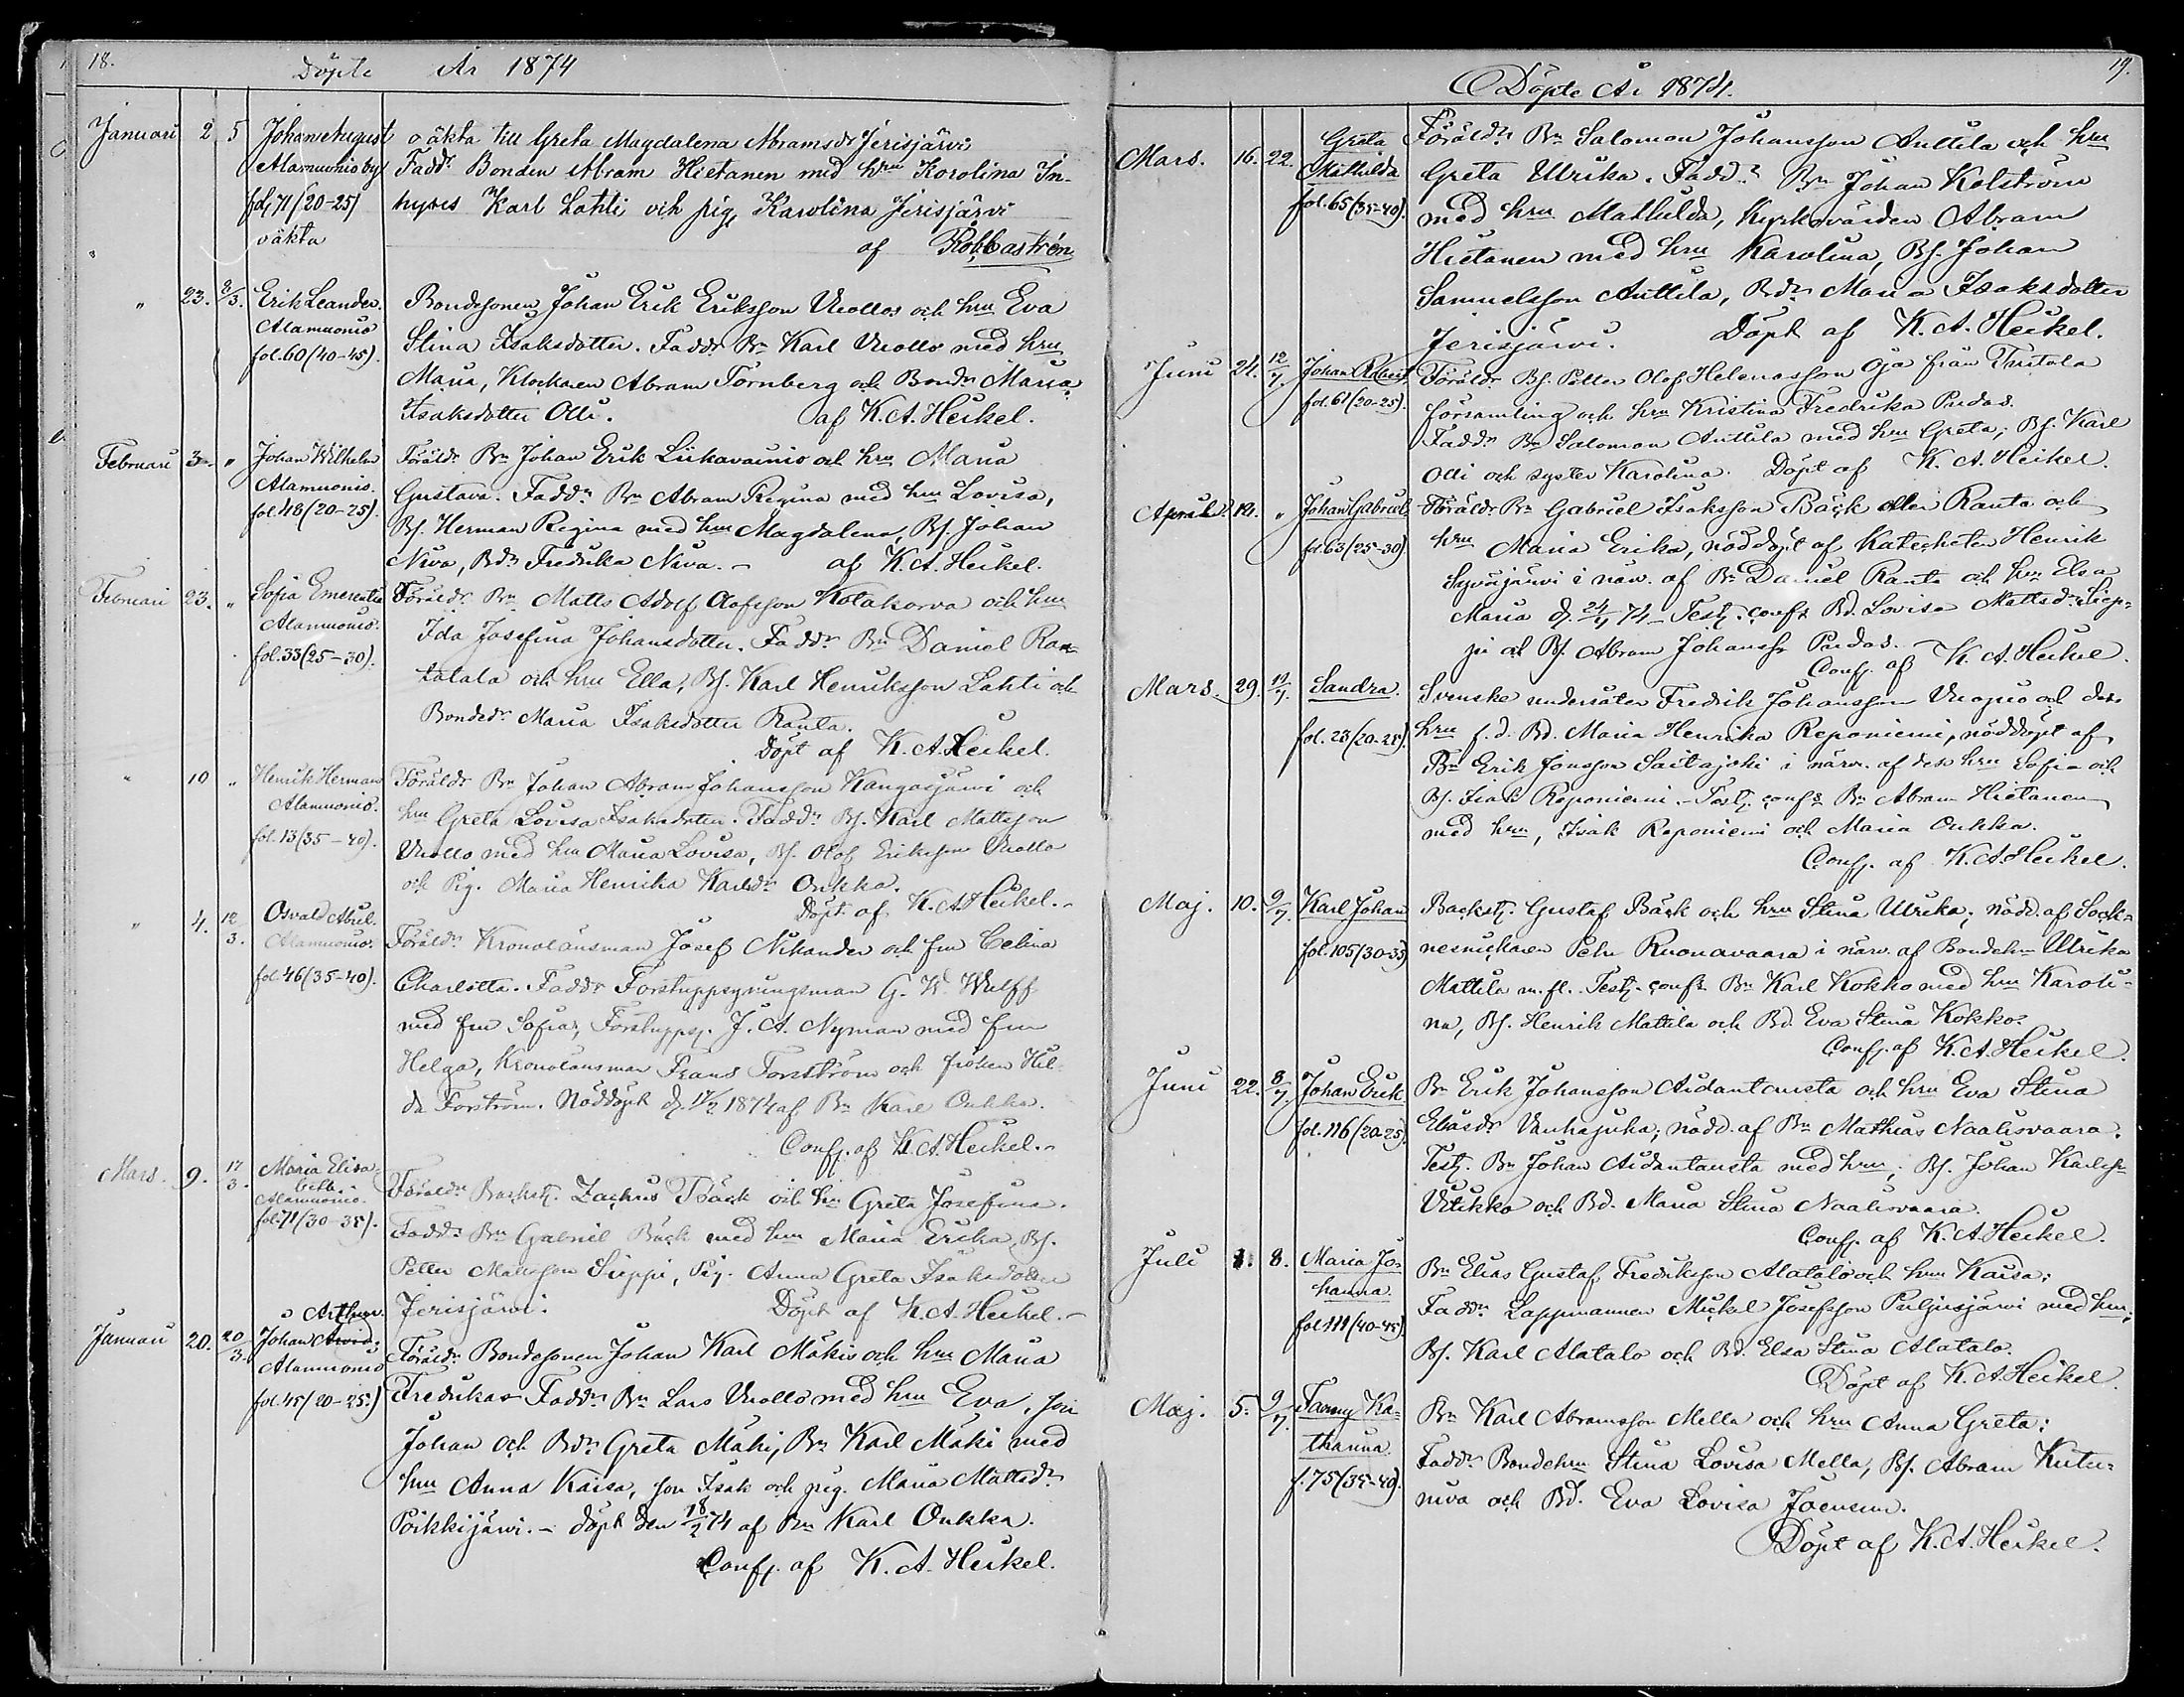 18.
Döpte År 1874
Januari 2 5 Johan August oäkta till Greta Magdalena Abramsdr Jerisjärvi
Alamuonio by Fadd. Bonden Abram Hietanen med hru Karolina In-
fol. 71 (20-25) hyses Karl Lahti och pig. Karolina Jerisjärvi
oäkta af Robb. Castrén
" 23. 8/3. Erik Leander. Bondesonen Johan Erik Eriksson Uollos och hru Eva
Alamuonio Stina Isaksdotter. Faddr Bn Karl Uollo med hru
fol. 60 (40-45). Maria, Klockaren Abram Törnberg och Bondr Maria
Isaksdotter Olli. af K.A. Heikel.
Februari 3 " Johan Wilhelm Föräldr Bn Johan Erik Liikavainio och hru Maria
Alamuonio. Gustava. Fadd. Bn Abram Regina med hru Lovisa,
fol. 48 (20-25). Bs. Herman Regina med hru Magdalena, Bs. Johan
Niva, Bdr Fredrika Niva. - af K.A. Heikel.
Februari 23. " Sofia Emerentia Föräldr. Bn Matts Adolf Olofsson Kotakorva och hru
Alamuonio. Ida Josefina Johansdotter. Faddr Bn Daniel Ran-
fol. 33 (25-30). talala och hru Ella, Bs. Karl Henriksson Lahti och
Bondedr Maria Isaksdotter Ranta.
Döpt af K.A. Heikel.
" 10 " Henrik Herman Föräldr Bn Johan Abram Johansson Kangosjärvi och
Alamuonio. hru Greta Lovisa Isaksdotter. Faddr. Bs. Karl Mattsson
fol. 13 (35-40). Uollo med hru Maria Lovisa, Bs. Olof Eriksson Uollo
och Pig. Maria Henrika Karlsdr Onkka.
Döpt af K.A. Heikel.-
" 4. 12/3. Osvald Abiel.
Alamuonio. Föräldr Kronolänsman Josef Nikander och fru Celina
fol. 46 (35-40). Charlotta. Faddr Forstuppsyningsman G. W. Wulff
med fru Sofia, Forstupps. J. A. Nyman med fru
Helga, Kronolänsman Frans Forsström och fröken Hil-
da Forström. Nöddöpt d. 17/2 1874 af Bn Karl Onkka.
Conf. af K.A. Heikel.-
Mars 9. 17/3. Maria Elisa-
beth. Alamuonio. Föräldr Backst. Zachris Bäck och hru Greta Josefina.
fol. 71 (30-35). Faddr Bn Gabriel Bäck med hru Maria Erika, Bs.
Petter Mattsson Sieppi, Pig. Anna Greta Isaksdotter
Jerisjärvi. Döpt af K.A. Heikel.-
Januari 20. 20/3. Johan Arthur. Arvid Föräldr Bondesonen Johan Karl Mäkis och hru Maria
Alamuonio
fol. 45 (20-25.) Fredrika Faddr Bn Lars Uollo med hru Eva, son
Johan och Bdr Greta Mäki, Bn Karl Mäki med
hru Anna Kaisa, son Isak och pig. Maria Mattsdr
Poikkijärvi. - döpt den 18/2 74 af Bn Karl Onkka.
Conf. af K.A. Heikel.
19.
Döpte År 1874.
Mars. 16. 22. Greta Föräldr. Bn Salomon Johansson Anttila och hru
Mathilda Greta Ulrika. Faddr Bn Johan Kolström
fol. 65 (35-40). med hru Mathilda, Kyrkovärden Abram
Hietanen med hru Karolina, Bs. Johan
Samuelsson Anttila, Bdr Maria Isaksdotter
Jerisjärvi. Döpt af K.A. Heikel.
Juni 24. 12/7. Johan Robert Föräldr Bs. Petter Olof Helenasson Oja från Turtola
fol. 61 (20-25). församling och hru Kristina Fredrika Pardas.
Faddr Bn Salomon Anttila med hru Greta; Bs. Karl
Olli och syster Karolina. Döpt af K.A. Heikel.
April 14. " Johan Gabriel Föräldr Bn Gabriel Isaksson Bäck eller Ranta och
fol. 63 (25-30). hru Maria Erika, nöddöpt af Katecheten Henrik
Syväjärvi i närv. af Bn Daniel Ranta och hru Elsa
Maria d. 24/4 74 - Test. conf. Bd. Lovisa Mattsdr Siep-
pi och Bs. Abram Johanss. Pardas.
Conf. af K.A. Heikel.
Mars. 29. 12/7. Sandra. Svenske undersåten Fredrik Johansson Vuopio och dess
fol. 23 (20-25). hru f.d. Bd. Maria Henrika Reponiemi, nöddöpt af
Bn Erik Jonsson Saitajoki i närv. af dess hru Sofia och
Bs. Isak Reponiemi. - Test. conf. Bn Abram Hietanen
med hru, Isak Reponiemi och Maria Onkka.
Conf. af K.A. Heikel.
Maj. 10. 9/7. Karl Johan Backst. Gustaf Bäck och hru Stina Ulrika; nödd. af Sock-
fol. 105 (30-35) nesnickaren Petr Ruonavaara i närv. af Bondehru Ulrika
Mattila m. fl. Test. conf. Bn Karl Kokko med hru Karoli-
na, Bs. Henrik Mattila och Bd. Eva Stina Kokko.
Conf. af K.A. Heikel.
Juni 22. 8/7. Johan Erik Bn Erik Johansson Aidantausta och hru Eva Stina
fol. 116 (20-25). Eliasdr Vanhajuka; nödd. af Bn Mathias Naalisvaara.
Test. Bn Johan Aidantausta med hru; Bs. Johan Karlsson
Utikko och Bd. Maria Stina Naalisvaara.
Conf. af K.A. Heikel.
Juli 1. 8. Maria Jo-
hanna. Bn Elias Gustaf Fredriksson Alatalo och hru Kaisa;
fol. 111 (40-45). Faddr Lappmannen Mickel Josefsson Puljusjärvi med hru;
Bs. Karl Alatalo och Bd. Elsa Stina Alatalo.
Döpt af K.A. Heikel.
Maj. 5. 9/7. Fanny Ka- Bn Karl Abramsson Mella och hru Anna Greta;
thanna. Faddr Bondehru Stina Lovisa Mella, Bs. Abram Kutu-
f. 75 (35-40). niva och Bd. Eva Lovisa Joensuu.
Döpt af K.A. Heikel.